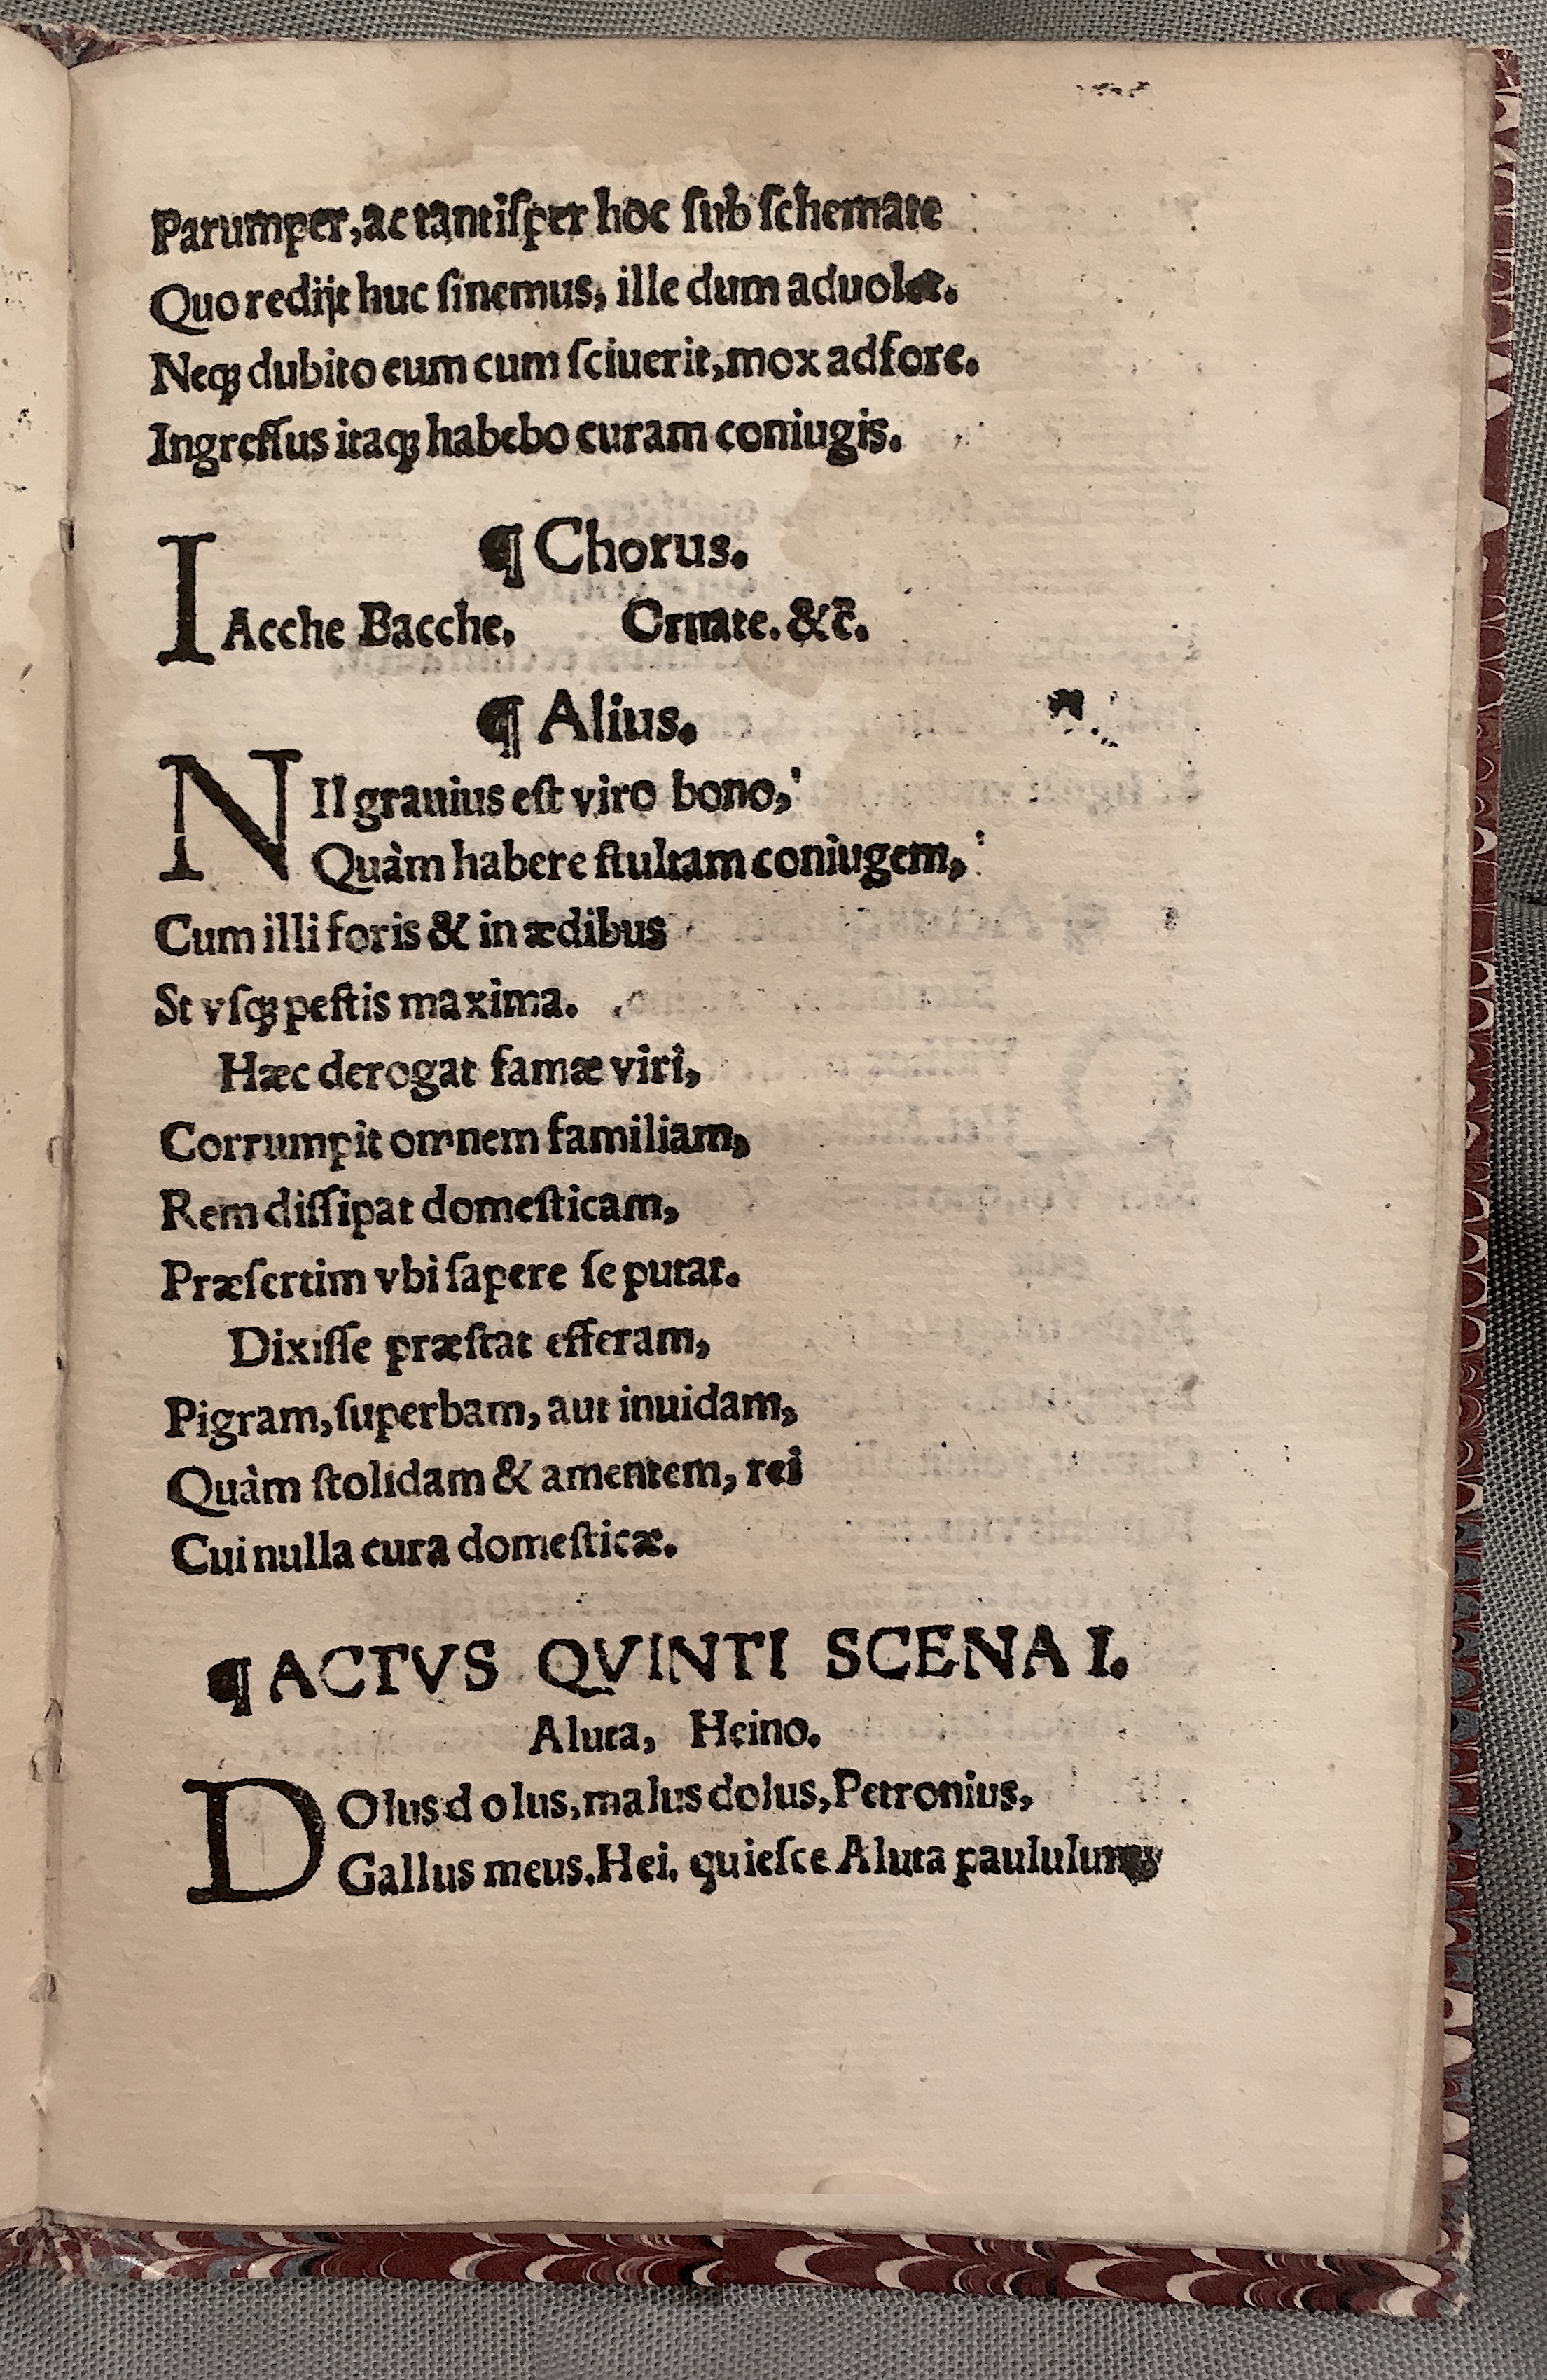 Parumper, ac tantiſper hoc ſub ſchemate
Quo redijt huc ſinemus, ille dum aduolet.
Neqꝫ dubito eum cum ſciuerit, mox adfore.
Ingreſſus itaqꝫ habebo curam coniugis.
¶ Chorus.
IAcche Bacche. Ornate. &c̄.
¶ Alius.
NIl grauius eſt viro bono,
Quàm habere ſtultam coniugem,
Cum illi foris & in ædibus
St vſqꝫ peſtis maxima.
Hæc derogat famæ viri,
Corrumpit omnem familiam,
Rem diſſipat domeſticam,
Præſertim vbi ſapere ſe putat.
Dixiſſe præſtat efferam,
Pigram, ſuperbam, aut inuidam,
Quàm ſtolidam & amentem, rei
Cui nulla cura domeſticæ.
¶ ACTVS QVINTI SCENA I.
Aluta, Heino.
DOlus dolus, malus dolus, Petronius,
Gallus meus. Hei. quieſce Aluta paululum